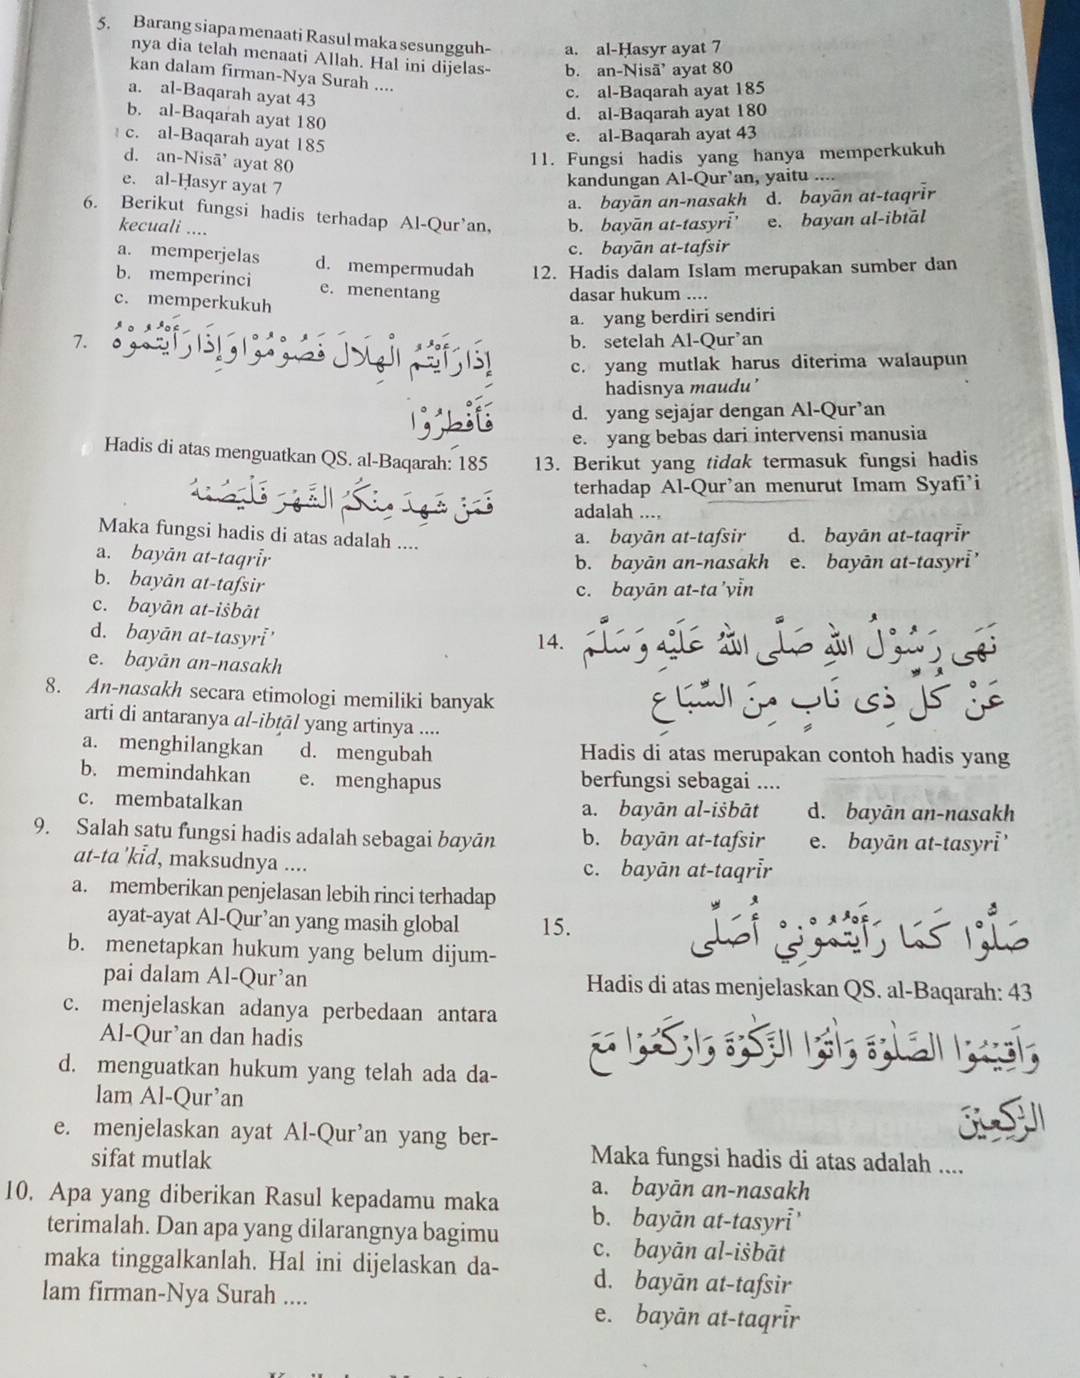 5. Barang siapa menaati Rasul maka sesungguh-
nya dia telah menaati Allah. Hal ini dijelas-
kan dalam firman-Nya Surah ....
a. al-Baqarah ayat 43
b. al-Baqarah ayat 180
c. al-Baqarah ayat 185
d. an-Nisā’ ayat 80
e. al-Ḥasyr ayat 7
6. Berikut fungsi hadis terhadap Al-Qur’an,
kecuali ....
a. memperjelas d. mempermudah
b. memperinci e. menentang
c. memperkukuh
7. إِذَا رَأَيْتُمُ الْهِلَالَ فَصُوْمُوْا وَإِذَا رَأَيْتُمُوْهُ
فَأَفْطِرُوْا
Hadis di atas menguatkan QS. al-Baqarah: 185
فَمَنْ شَهِدَ مِنْكُمُ الشَّهْرَ فَلْيَصُمْهُ
Maka fungsi hadis di atas adalah ....
a. bayān at-taqrīr
b. bayān at-tafsir
c. bayān at-iṡbāt
d. bayān at-tasyrī’
e. bayān an-nasakh
8. An-nasakh secara etimologi memiliki banyak
arti di antaranya al-ibṭāl yang artinya ....
a. menghilangkan d. mengubah
b. memindahkan e. menghapus
c. membatalkan
9. Salah satu fungsi hadis adalah sebagai bayān
at-ta’kīd, maksudnya ....
a. memberikan penjelasan lebih rinci terhadap
ayat-ayat Al-Qur’an yang masih global
b. menetapkan hukum yang belum dijum-
pai dalam Al-Qur’an
c. menjelaskan adanya perbedaan antara
Al-Qur’an dan hadis
d. menguatkan hukum yang telah ada da-
lam Al-Qur’an
e. menjelaskan ayat Al-Qur’an yang ber-
sifat mutlak
10. Apa yang diberikan Rasul kepadamu maka
terimalah. Dan apa yang dilarangnya bagimu
maka tinggalkanlah. Hal ini dijelaskan da-
lam firman-Nya Surah ....
a. al-Ḥasyr ayat 7
b. an-Nisā’ ayat 80
c. al-Baqarah ayat 185
d. al-Baqarah ayat 180
e. al-Baqarah ayat 43
11. Fungsi hadis yang hanya memperkukuh
kandungan Al-Qur’an, yaitu ....
a. bayān an-nasakh d. bayān at-taqrīr
b. bayān at-tasyrī’ e. bayan al-ibtāl
c. bayān at-tafsir
12. Hadis dalam Islam merupakan sumber dan
dasar hukum ....
a. yang berdiri sendiri
b. setelah Al-Qur’an
c. yang mutlak harus diterima walaupun
hadisnya maudu’
d. yang sejajar dengan Al-Qur’an
e. yang bebas dari intervensi manusia
13. Berikut yang tidak termasuk fungsi hadis
terhadap Al-Qur’an menurut Imam Syafi’i
adalah ....
a. bayān at-tafsir d. bayān at-taqrīr
b. bayān an-nasakh e. bayān at-tasyrī’
c. bayān at-ta’yīn
14. نَهَى رَسُوْلُ اللهِ صَلَّى اللهُ عَلَيْهِ وَسَلَّمَ
عَنْ كُلِّ ذِى نَابٍ مِنَ السِّبَاعِ
Hadis di atas merupakan contoh hadis yang
berfungsi sebagai ....
a. bayān al-iṡbāt d. bayān an-nasakh
b. bayān at-tafsir e. bayān at-tasyrī’
c. bayān at-taqrīr
15. صَلُّوْا كَمَا رَأَيْتُمُوْنِيْ أُصَلِّى
Hadis di atas menjelaskan QS. al-Baqarah: 43
وَاَقِيْمُوا الصَّلٰوةَ وَاٰتُوا الزَّكٰوةَ وَارْكَعُوْا مَعَ
الرّٰكِعِيْنَ
Maka fungsi hadis di atas adalah ....
a. bayān an-nasakh
b. bayān at-tasyrī’
c. bayān al-iṡbāt
d. bayān at-tafsir
e. bayān at-taqrīr